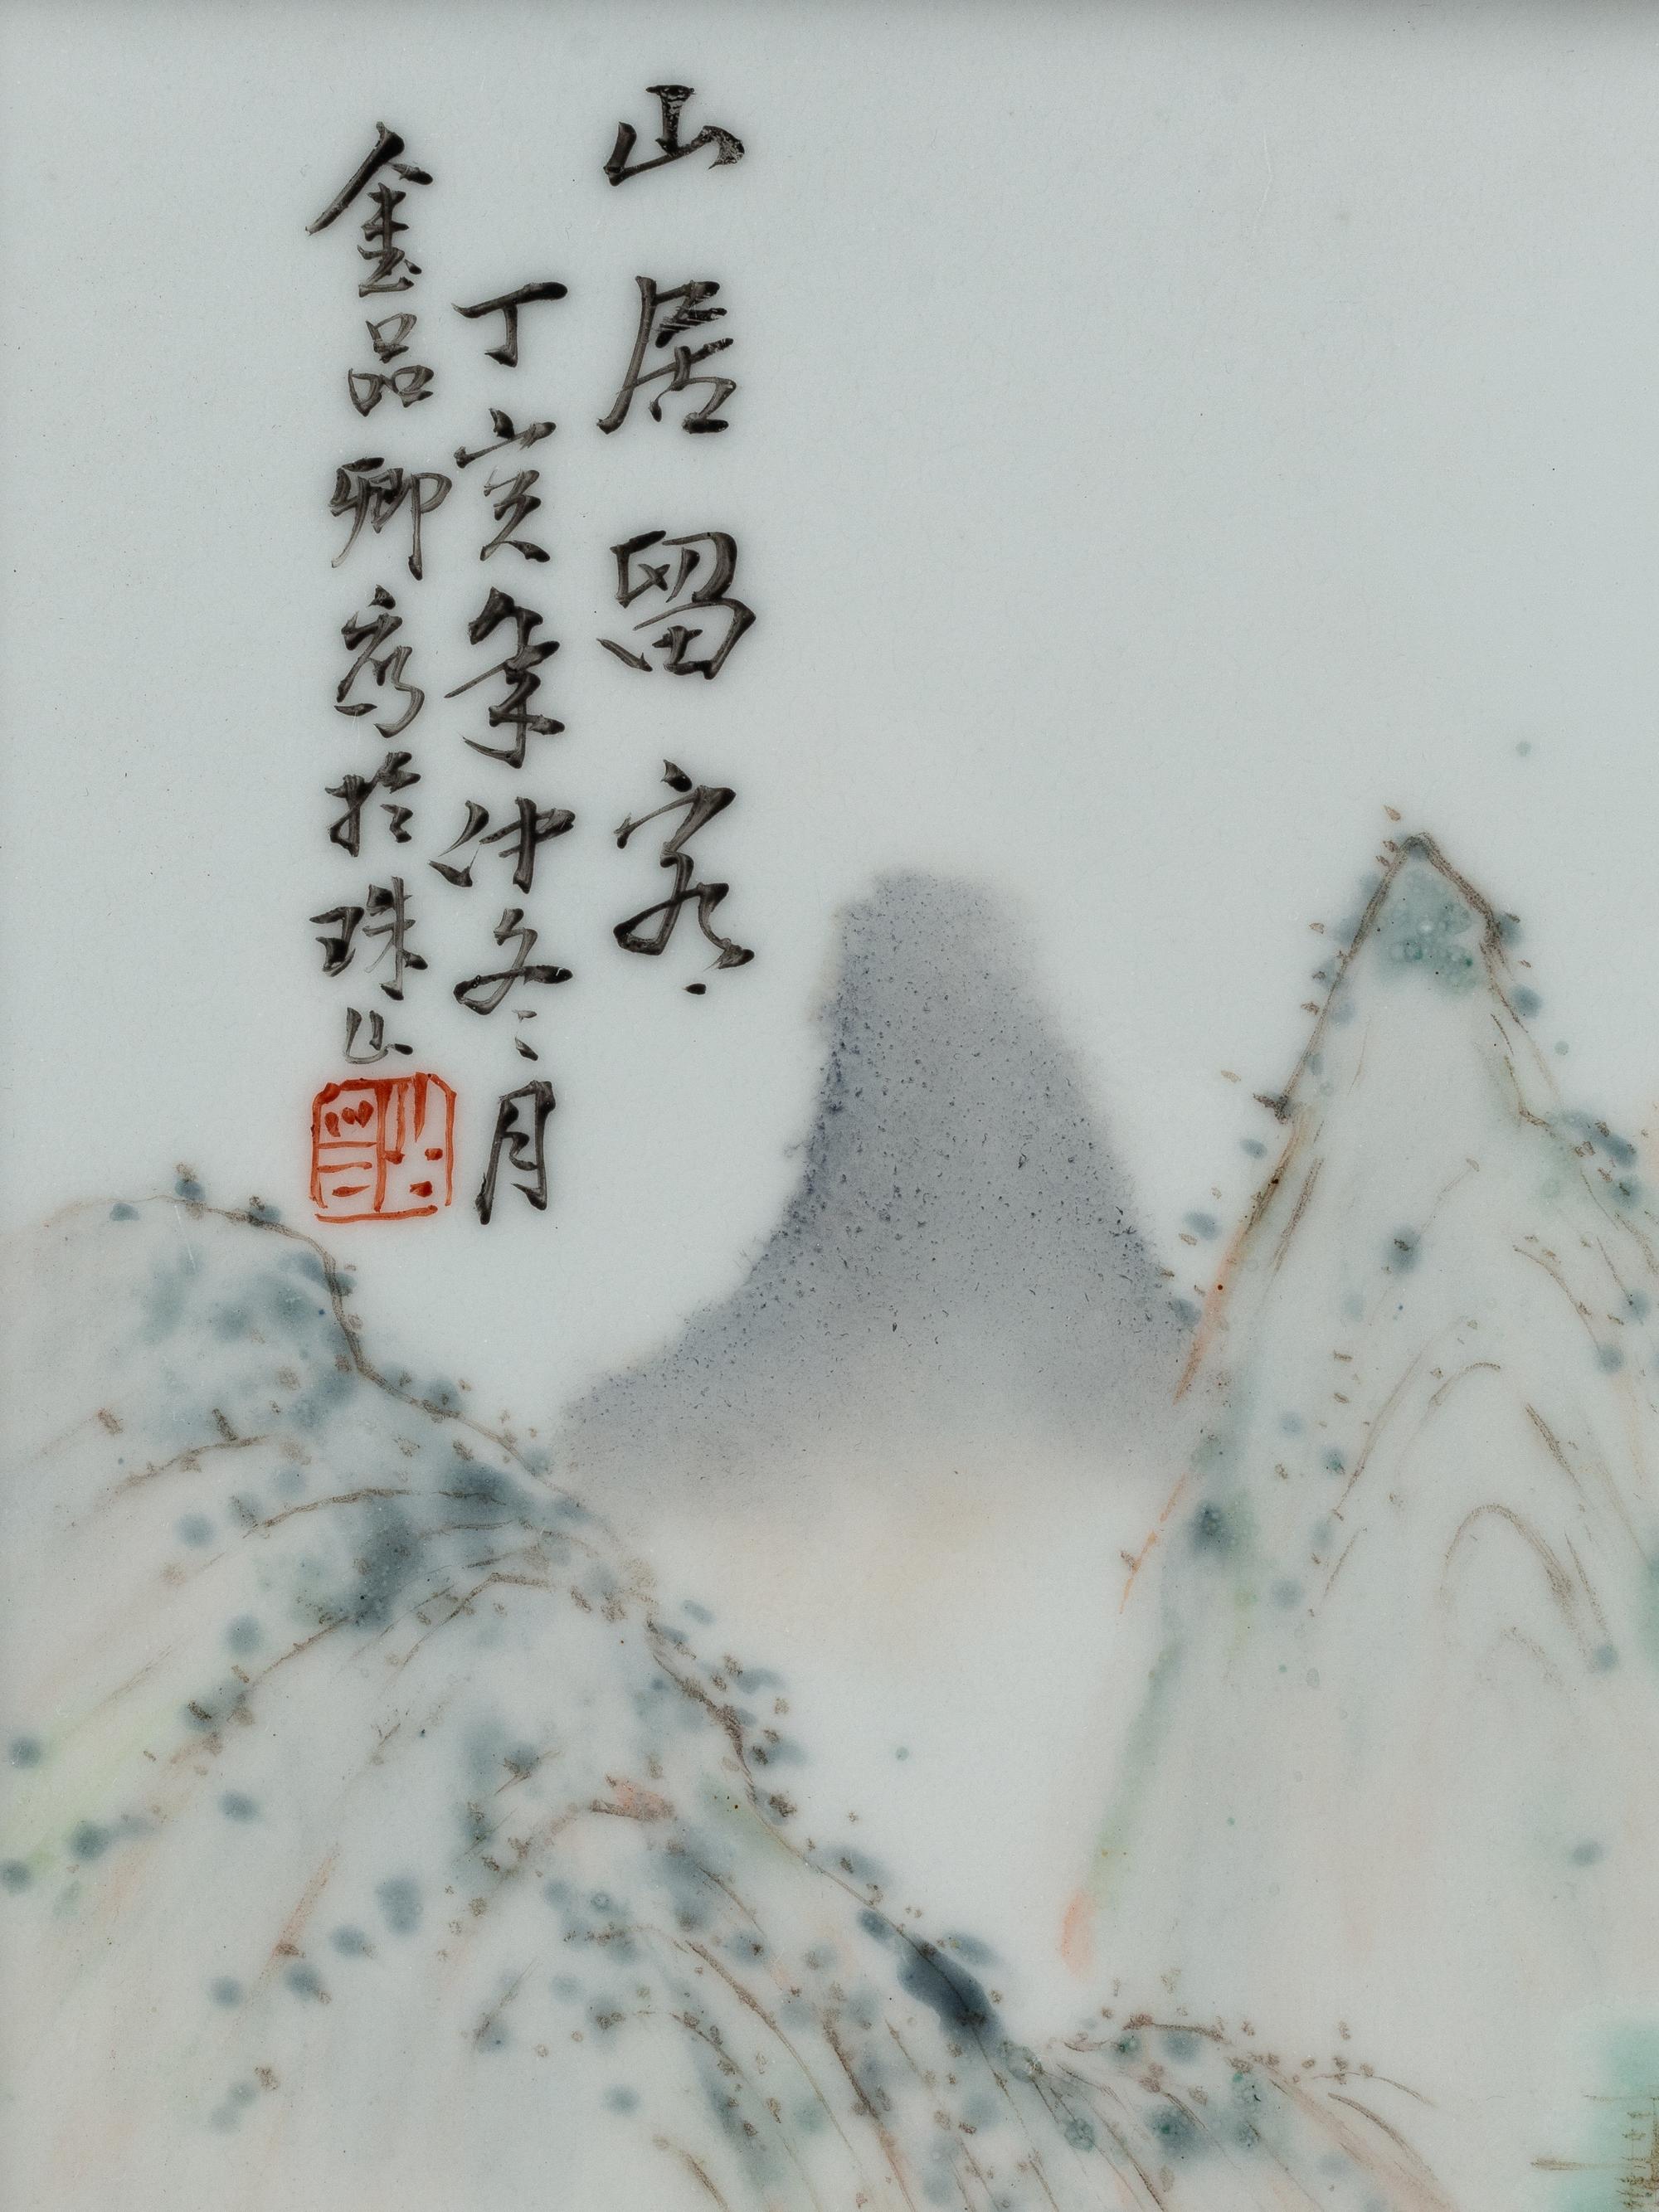 山居留客
丁亥年仲冬月
金品卿寫於珠山